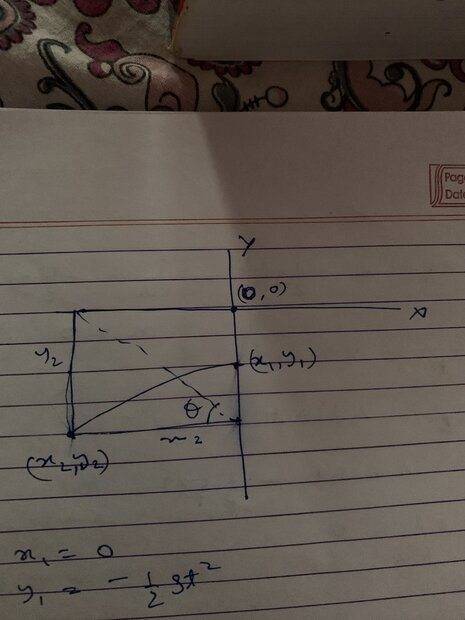 Pag
Date
Y
(0,0)
X
y₂
(x₁, y₁)
θ
x₂
(x₂, y₂)
x₁ = 0
y₁ = - 1/2 gt²